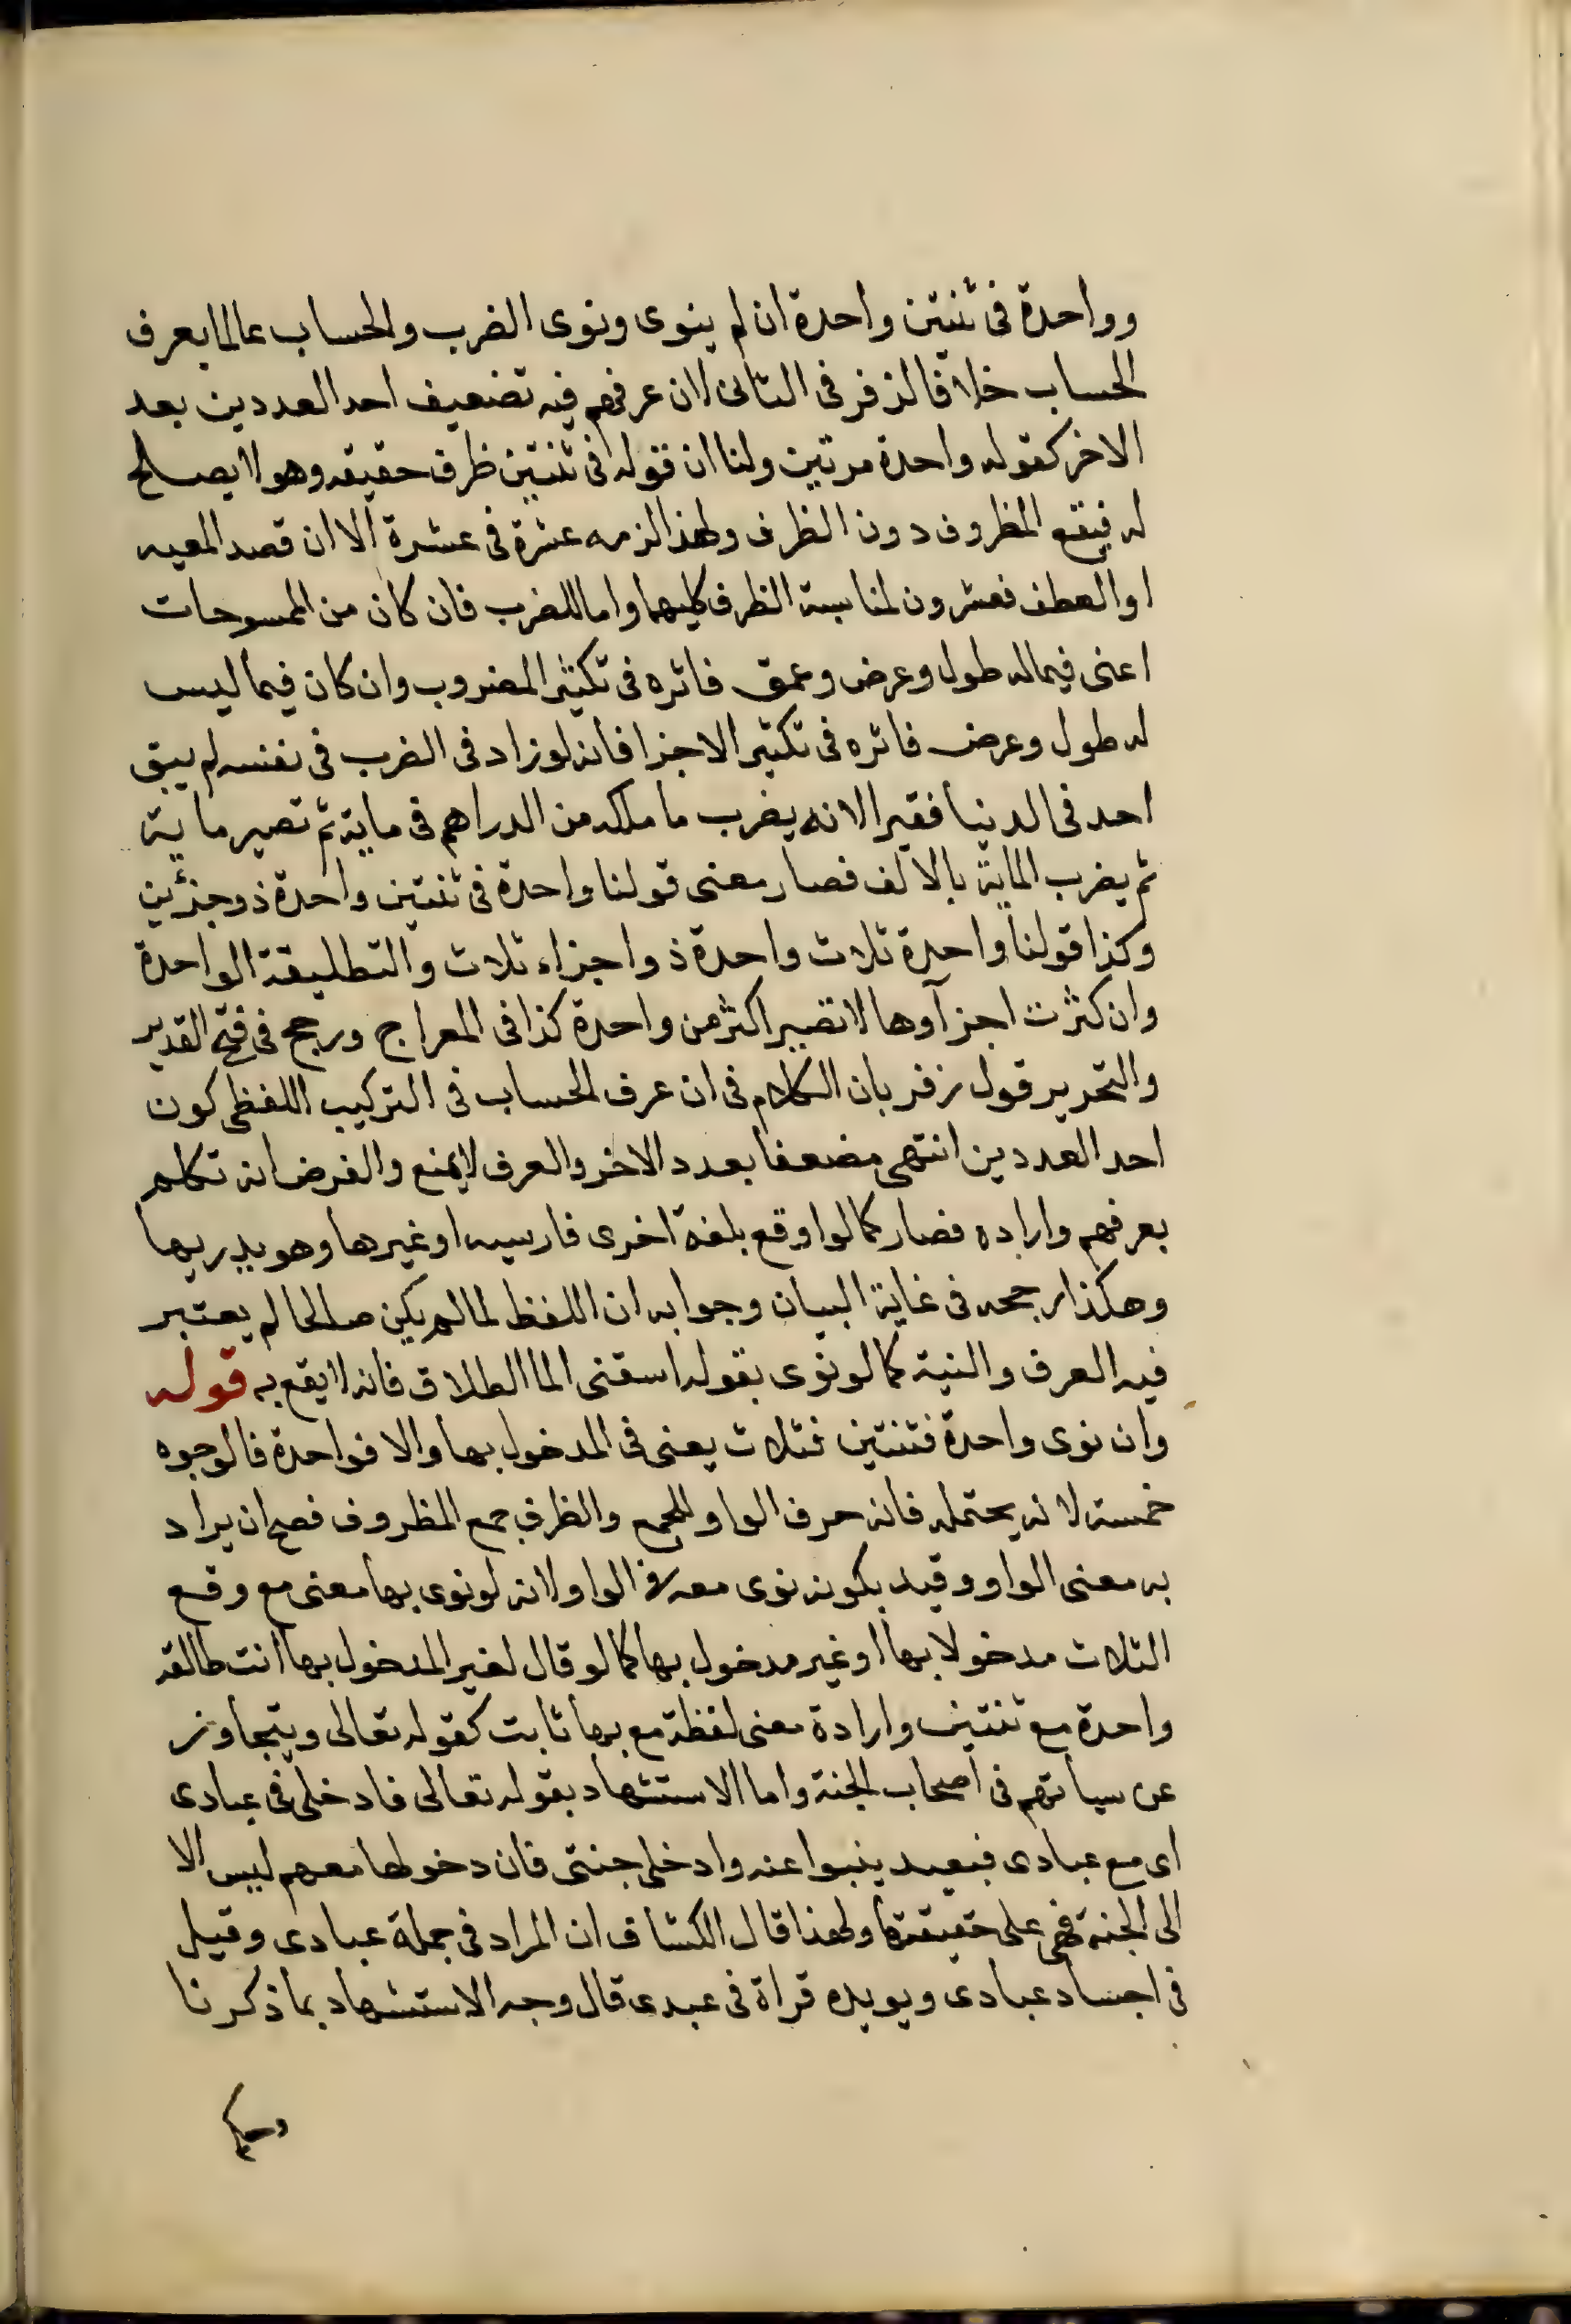 وواحدة فى ثنتين واحدة ان لم ينوى ونوى الضرب والحساب عالما بعرف
الحساب خلافا لزفر فى الثانى لان عرفهم فيه تضعيف احد العددين بعد
الاخر كقوله واحدة مرتين ولنا ان قوله فى ثنتين ظرف حقيقه وهو لا يصلح
له فيقع المظروف دون الظرف ولهذا لزمه عشرة فى عشرة الا ان قصد المعيه
او العطف فعشرون لمناسبة الظرف كليهما واما للضرب فان كان من الممسوحات
اعنى فيما له طول وعرض وعمق فاثره فى تكيثر المضروب وان كان فيما ليس
له طول وعرض فاثره فى تكثير الاجزا فانه لو زاد فى الضرب فى نفسه لم يبق
احد فى الدنيا فقير الانه يضرب ما ملكه من الدراهم فى ماية ثم تصير ماية
ثم يضرب الماية بالالف فصار معنى قولنا واحدة فى ثنتين واحدة ذو جزئين
وكذا قولنا واحدة ثلاث واحدة ذو اجزاء ثلاث والتطليقة الواحدة
وان كثرت اجزآوها لا تصير اكثر من واحدة كذا فى المعراج ورجح فى فتح القدير
والتحرير قول زفر بان الكلام فى ان عرف الحساب فى التركيب اللفظى كون
احد العددين انتهى مضعفا بعدد الاخر والعرف لا يمنع والفرض انه تكلم
بعرفهم واراده فصار كما لو اوقع بلغة اخرى فارسيه او غيرها وهو يدريها
وهكذا رجحه فى غاية البيان وجوابه ان اللفظ لما لم يكن صالحا لم يعتبر
فيه العرف والنية كما لو نوى بقوله اسقنى الما الطلاق فانه لا يقع به قوله
وان نوى واحدة فثنتين فثلاث يعنى فى المدخول بها والا فواحدة فالوجوه
خمسة لانه يحتمله فانه حرف الواو للجمع والظرف جمع المظروف فصح ان يراد
به معنى الواو وقيد بكونه نوى معه فى الواو لانه لو نوى بها معنى مع وقع
الثلاث مدخولا بها او غير مدخول بها كما لو قال لغير المدخول بها انت طالقه
واحدة مع ثنتين وارادة معنى لفظة مع بها ثابت كقوله تعالى ويتجاوز
عن سياتهم فى اصحاب الجنة واما الاستشهاد بقوله تعالى فادخلى فى عبادى
اى مع عبادى فبعيد ينبوا عنه وادخلى جنتى فان دخولها معهم ليس الا
الى الجنة فهى على حقيقتها ولهذا قال الكشاف ان المراد فى جملة عبادى وقيل
فى اجساد عبادى ويويده قراة فى عبدى قال وجه الاستشهاد بما ذكرنا